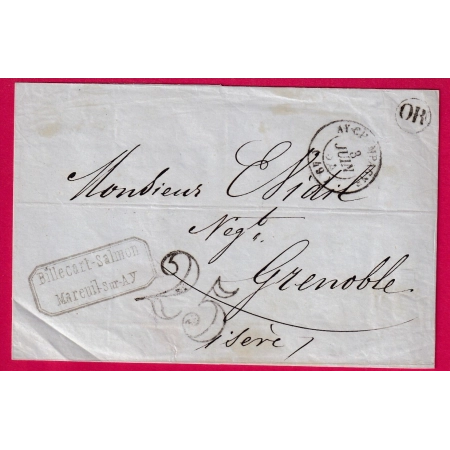 OR
AY-CHAMPAGNE
3
JUIN
(49)
Monsieur E Vidil
Negt.
Grenoble
Isère
Billecart-Salmon
Mareuil-sur-Ay
25